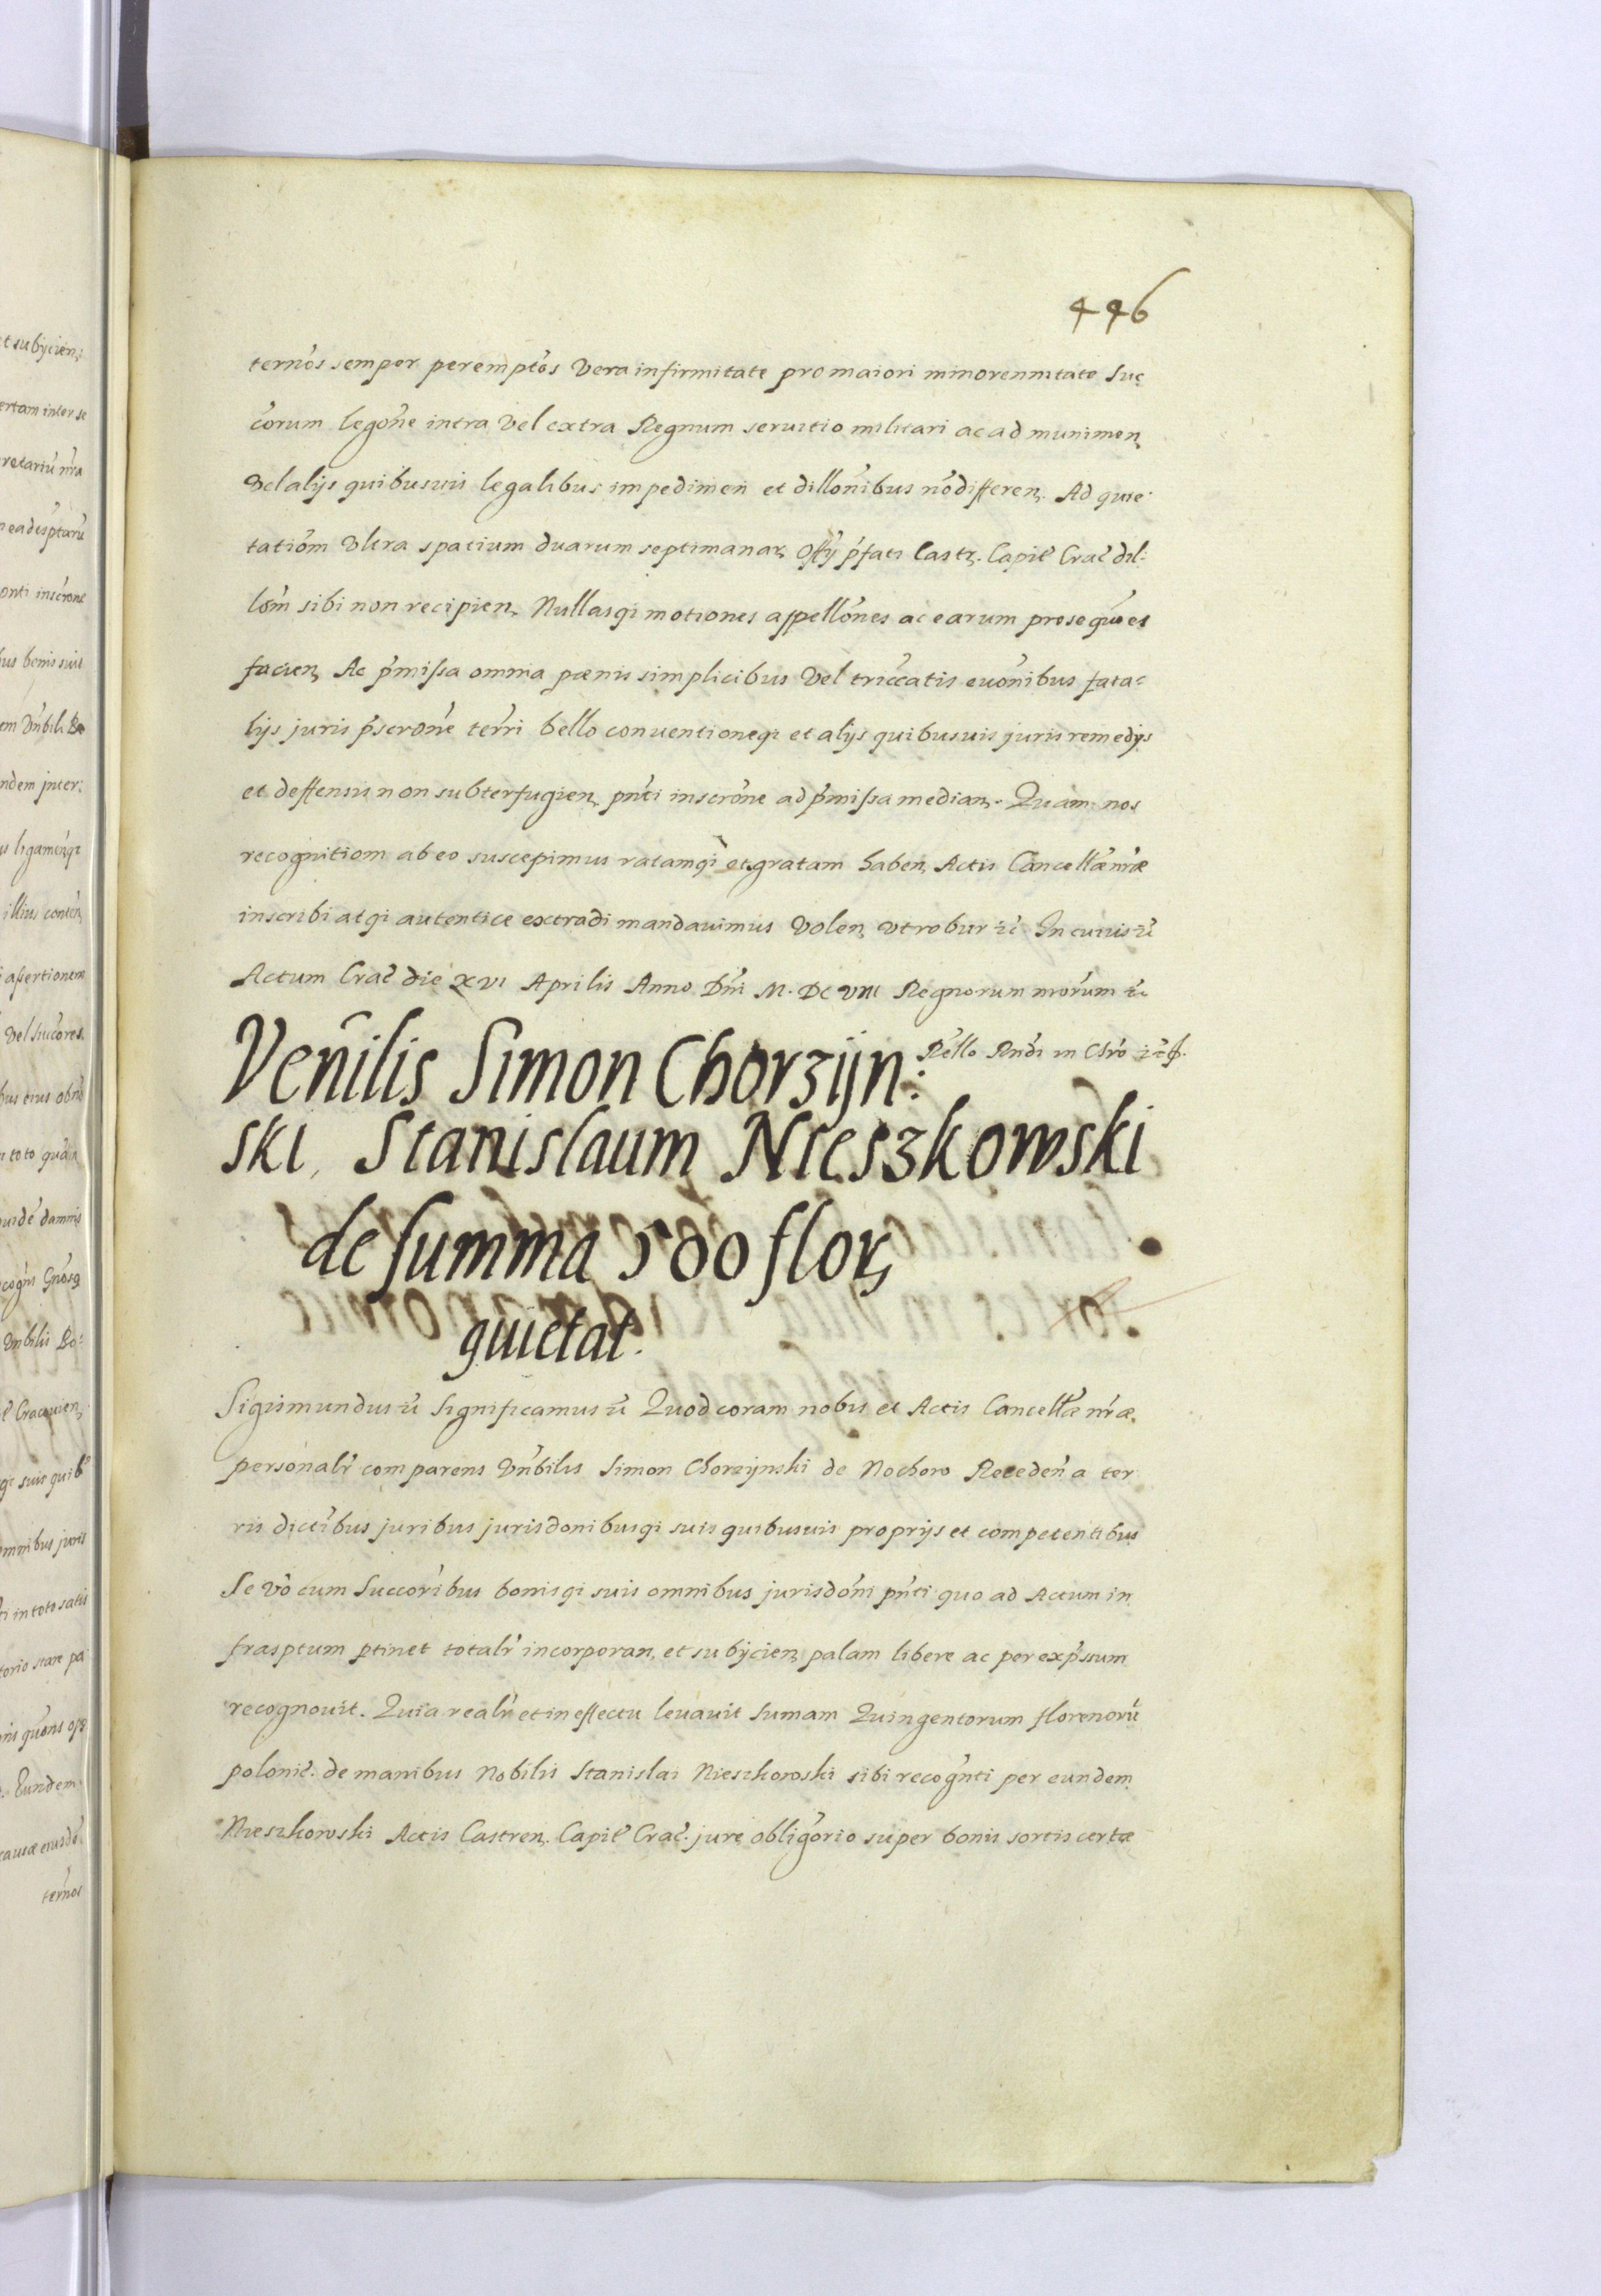 446
ternos semper peremptos vera infirmitate pro maiori minorennitate Suc
corum legõne intra vel extra Regnum seruitio militari ac ad munimen
vel alijs quibusuis legalibus impedimen et dillõnibus nõ differen. Ad quie
tatiõm vltra spatium duarum septimanar Offÿ pfati Castr. Capit Crac dil:
lõm sibi non recipien. Nullasqi motiones appellõnes ac earum
facien, Ac pmissa omnia pænis simplicibus vel triccatis euõnibus fata:
lijs juris pscrõne terri bello conuentioneqi et alijs quibusuis juris remedijs
et deffensis non subterfugien, pñti inscrõne ad pmissa median. Quam nos
recognitiom ab eo suscepimus ratamqi et gratam haben, Actis Cancellæ nræ
inscribi atqi autentice extradi mandauimus volen, vt robur &c In cuius &c
Actum Crac die XVI Aprilis Anno Dni M. DC VIII Regnorum nrorum &c
Rello Rndi in Chro
Venilis Simon Chorzijn:
ski, Stanislaum Nieszkowski
de summa 500 flor,
quietat.
Sigismundus &c Significamus &c Quod coram nobis et Actis Cancellæ nræ
personalr comparens Vnbilis Simon Chorzijnski de Nochoro Receden a ter
ris dictibus juribus jurisdonibusqi suis quibusuis proprijs et competentibus
Se vo cum Succoribus bonisqi suis omnibus jurisdõni pñti quo ad Actum in
frasptum ptinet totalr incorporan, et subijcien, palam libere ac per expssum
recognouit. Quia realr et in effectu leuauit Sumam Quingentorum florenorũ
polonic. de manibus Nobilis Stanislai Nieszkowski sibi recognti per eundem
Nieszkowski Actis Castren. Capit Crac. jure obligõrio super bonis sortis certæ